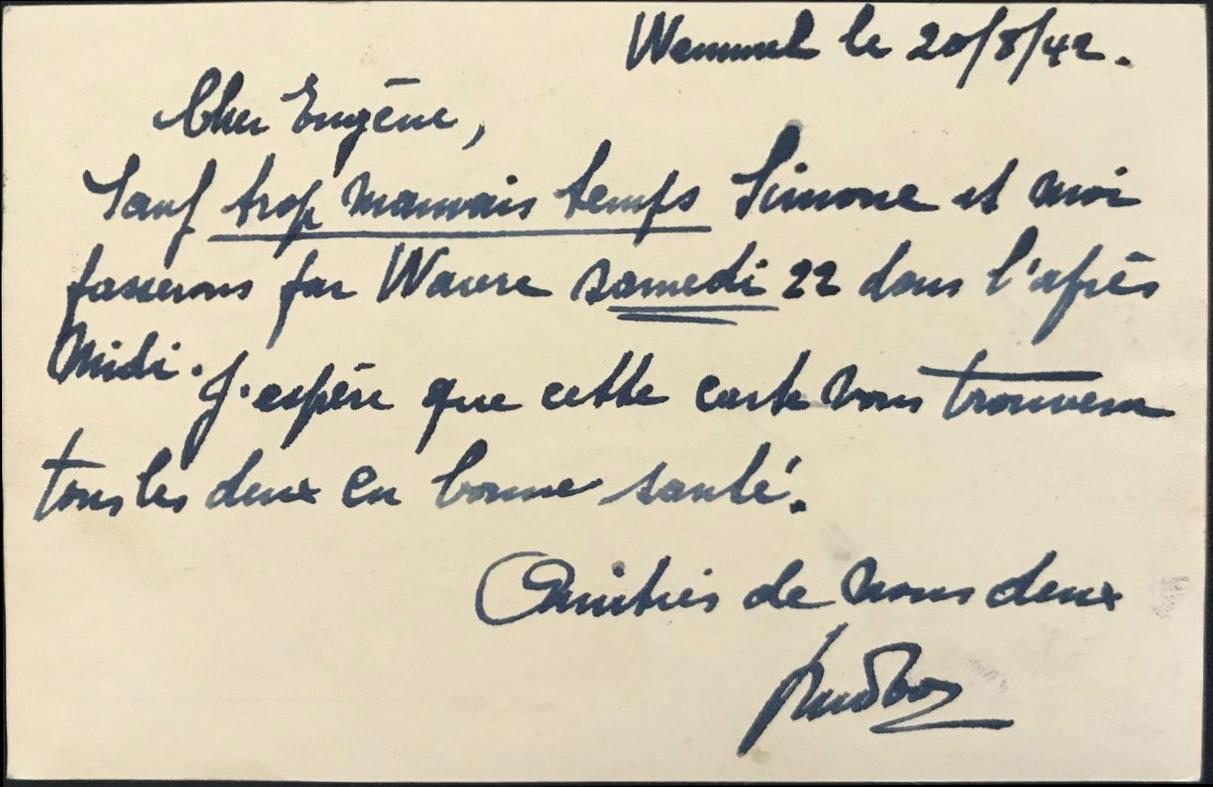 Wemmel le 20/8/42.
Cher Eugène,
Sauf trop mauvais temps Simone et moi
passerons par Wavre samedi 22 dans l'après
midi. J'espère que cette carte vous trouvera
tous les deux en bonne santé.
Amitiés de nous deux